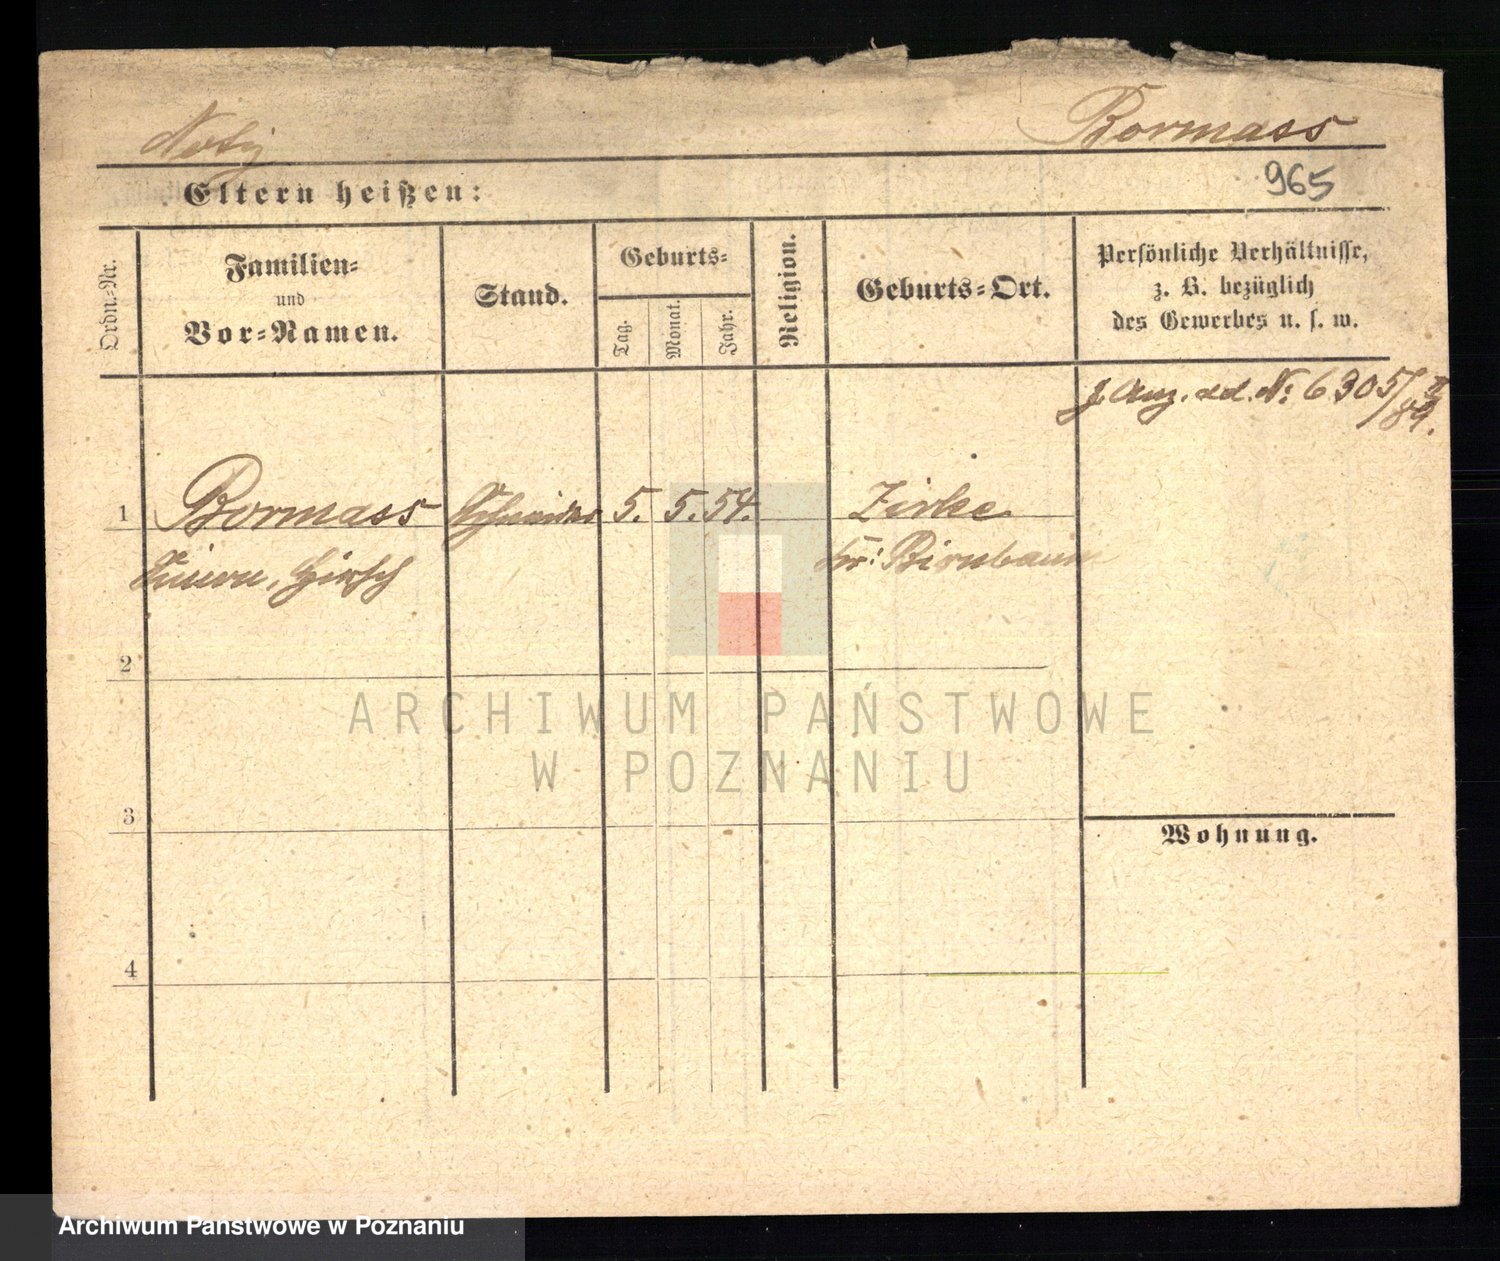 Notiz
Bormass
965
Eltern heißen:
Ordn.=Nr.
Familien=
und
Vor=Namen.
Stand.
Geburts=
Tag.
Monat.
Jahr.
Religion.
Geburts=Ort.
Persönliche Verhältnisse,
z. B. bezüglich
des Gewerbes u. s. w.
Anz. No: 6305/
89.
1 Bormass Schneider 5. 5. 54. Zirke
Hirsch Kr: Birnbaum
2
3
4
Wohnung.
ARCHIWUM PAŃSTWOWE
W POZNANIU
Archiwum Państwowe w Poznaniu